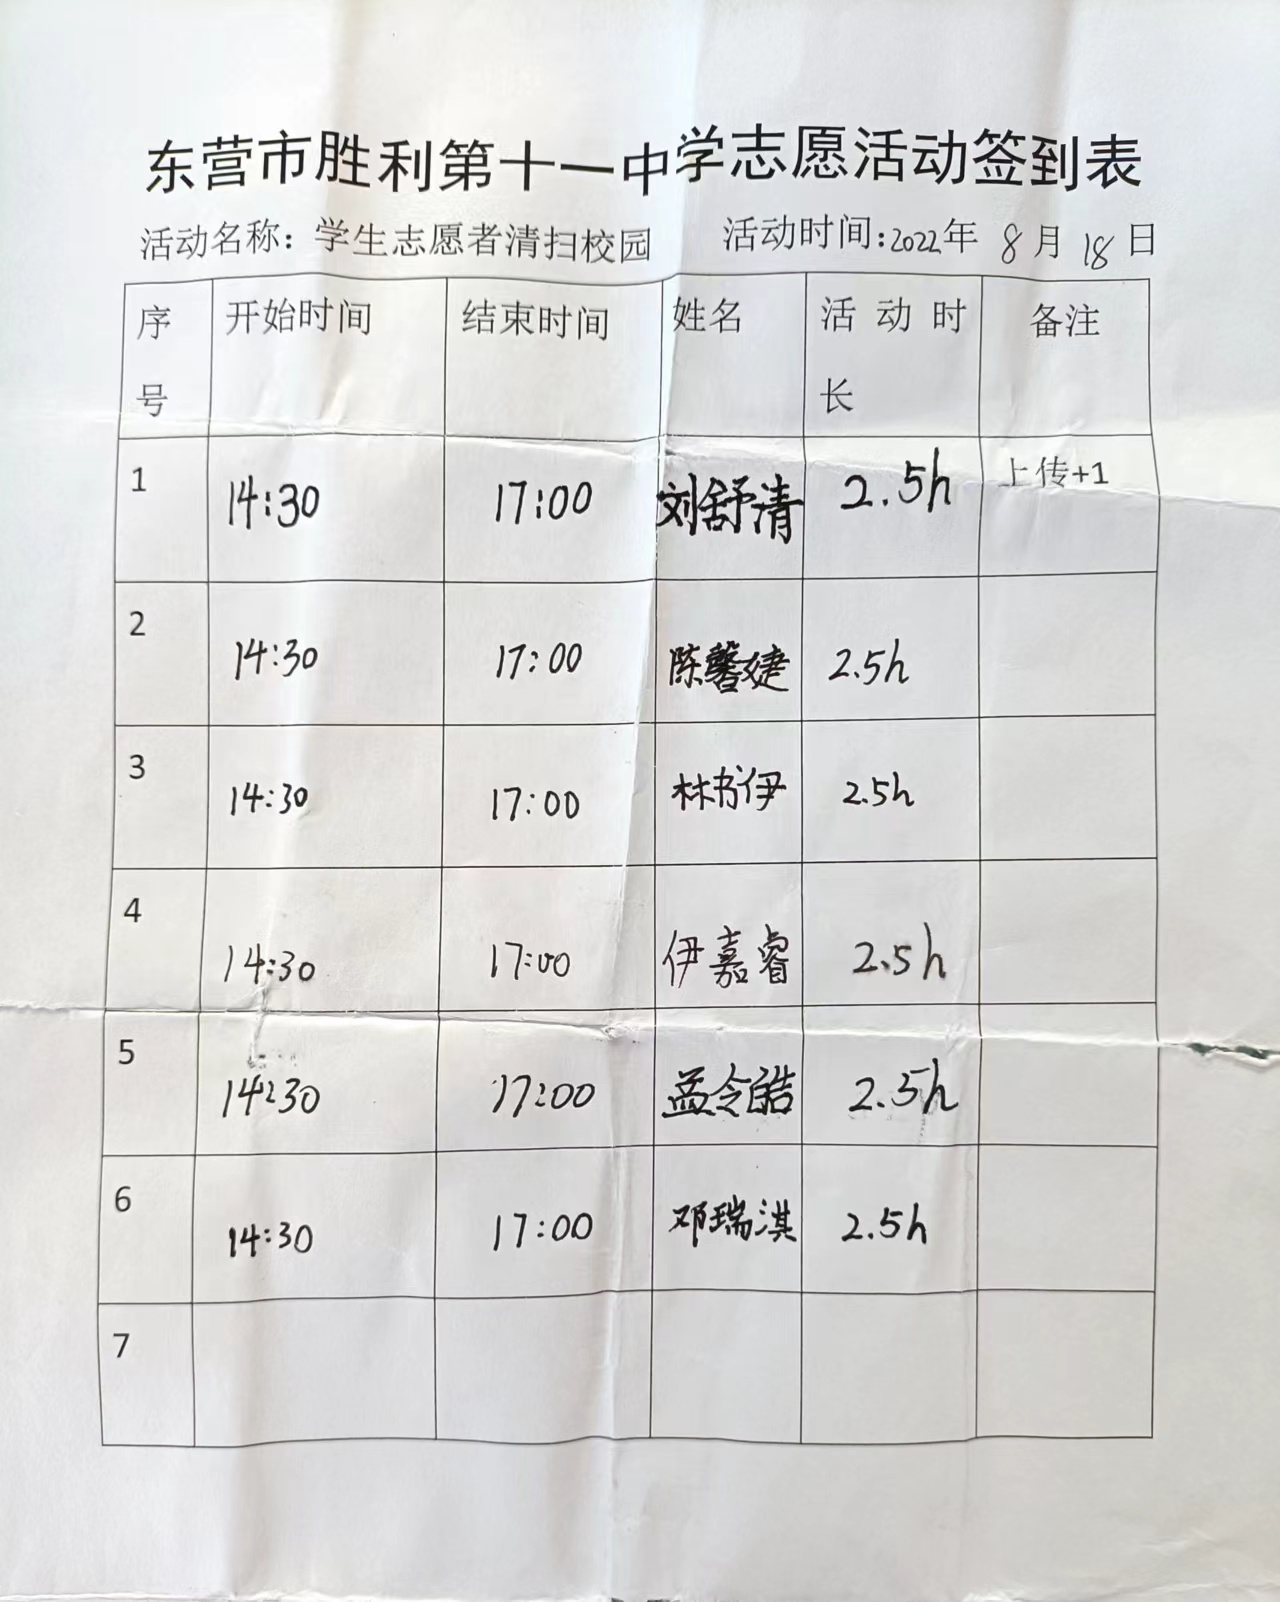 东营市胜利第十一中学志愿活动签到表
活动名称：学生志愿者清扫校园 活动时间：2022年 8月 18日
序号 开始时间 结束时间 姓名 活动时长 备注
1 14:30 17:00 刘舒清 2.5h 上传+1
2 14:30 17:00 陈馨婕 2.5h
3 14:30 17:00 林书伊 2.5h
4 14:30 17:00 伊嘉睿 2.5h
5 14:30 17:00 孟令皓 2.5h
6 14:30 17:00 邓瑞淇 2.5h
7